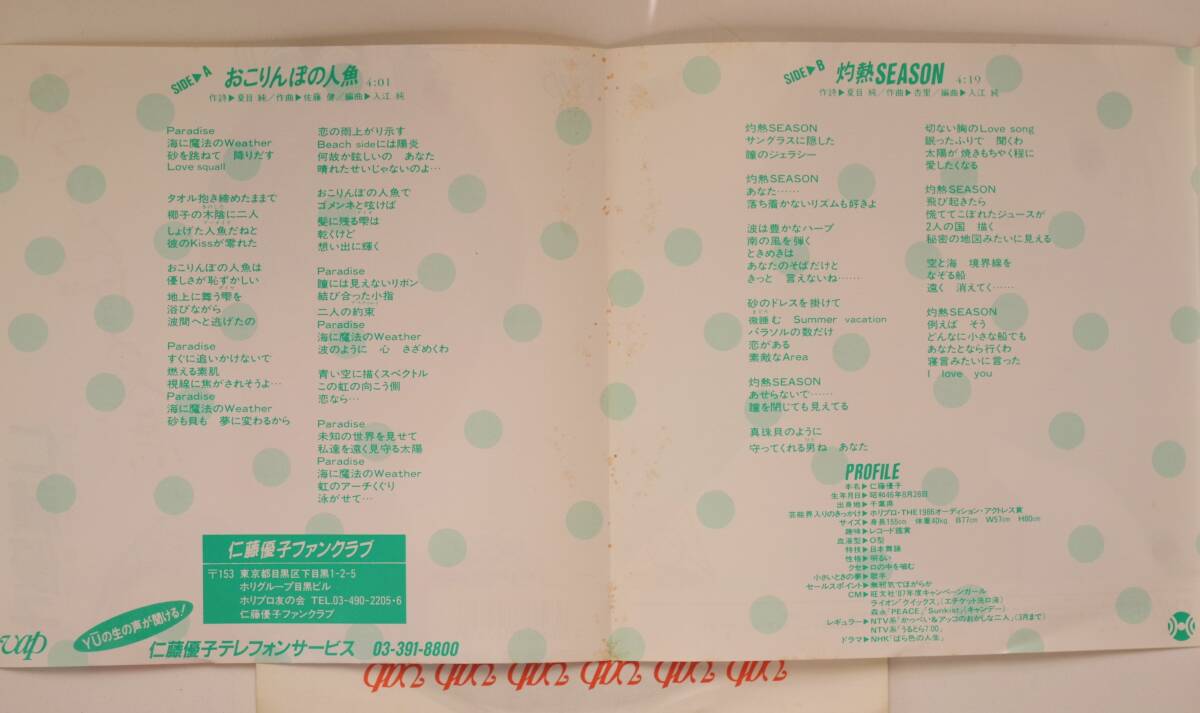 SIDE▶A おこりんぼの人魚 4:01
作詩▶夏目 純／作曲▶佐藤 健／編曲▶入江 純
Paradise
海に魔法のWeather
砂を跳ねて 降りだす
Love squall
タオル抱き締めたままで
椰子の木陰に二人
しょげた人魚だねと
彼のKissが零れた
おこりんぼの人魚は
優しさが恥ずかしい
地上に舞う雫を
浴びながら
波間へと逃げたの
Paradise
すぐに追いかけないで
燃える素肌
視線に焦がされそうよ…
Paradise
海に魔法のWeather
砂も貝も 夢に変わるから
恋の雨上がり示す
Beach sideには陽炎
何故か眩しいの あなた
晴れたせいじゃないのよ…
おこりんぼの人魚で
ゴメンネと呟けば
髪に残る雫は
乾くけど
想い出に輝く
Paradise
瞳には見えないリボン
結び合った小指
二人の約束
Paradise
海に魔法のWeather
波のように 心 さざめくわ
青い空に描くスペクトル
この虹の向こう側
恋なら…
Paradise
未知の世界を見せて
私達を遠く見守る太陽
Paradise
海に魔法のWeather
虹のアーチくぐり
泳がせて…
仁藤優子ファンクラブ
〒153 東京都目黒区下目黒1-2-5
ホリグループ目黒ビル
ホリプロ友の会 TEL.03-490-2205・6
仁藤優子ファンクラブ
vap
YŪの生の声が聞ける!
仁藤優子テレフォンサービス 03-391-8800
SIDE▶B 灼熱SEASON 4:19
作詩▶夏目 純／作曲▶杏里／編曲▶入江 純
灼熱SEASON
サングラスに隠した
瞳のジェラシー
灼熱SEASON
あなた……
落ち着かないリズムも好きよ
波は豊かなハープ
南の風を弾く
ときめきは
あなたのそばだけと
きっと 言えないね……
砂のドレスを掛けて
微睡む Summer vacation
パラソルの数だけ
恋がある
素敵なArea
灼熱SEASON
あせらないで……
瞳を閉じても見えてる
真珠貝のように
守ってくれる男ね あなた
切ない胸のLove song
眠ったふりで 聞くわ
太陽が焼きもちゃく程に
愛したくなる
灼熱SEASON
飛び起きたら
慌ててこぼれたジュースが
2人の国 描く
秘密の地図みたいに見える
空と海 境界線を
なぞる船
遠く 消えてく……
灼熱SEASON
例えば そう
どんなに小さな船でも
あなたとなら行くわ
寝言みたいに言った
I love you
PROFILE
本名▶仁藤優子
生年月日▶昭和46年8月28日
出身地▶千葉県
芸能界入りのきっかけ▶ホリプロ・THE1986オーディション・アクトレス賞
サイズ▶身長155cm 体重40kg B77cm W57cm H80cm
趣味▶レコード鑑賞
血液型▶O型
特技▶日本舞踊
性格▶明るい
クセ▶口の中を噛む
小さいときの夢▶歌手
セールスポイント▶無邪気でほがらか
CM▶旺文社'87年度キャンペーンガール
ライオン「クイックス」(エチケット洗口液)
森永「PEACE」「Sunkist」(キャンデー)
レギュラー▶NTV系「かっぺい&アッコのおかしな二人」(3月まで)
NTV系「うるとら7:00」
ドラマ▶NHK「ばら色の人生」
vap vap vap vap vap vap